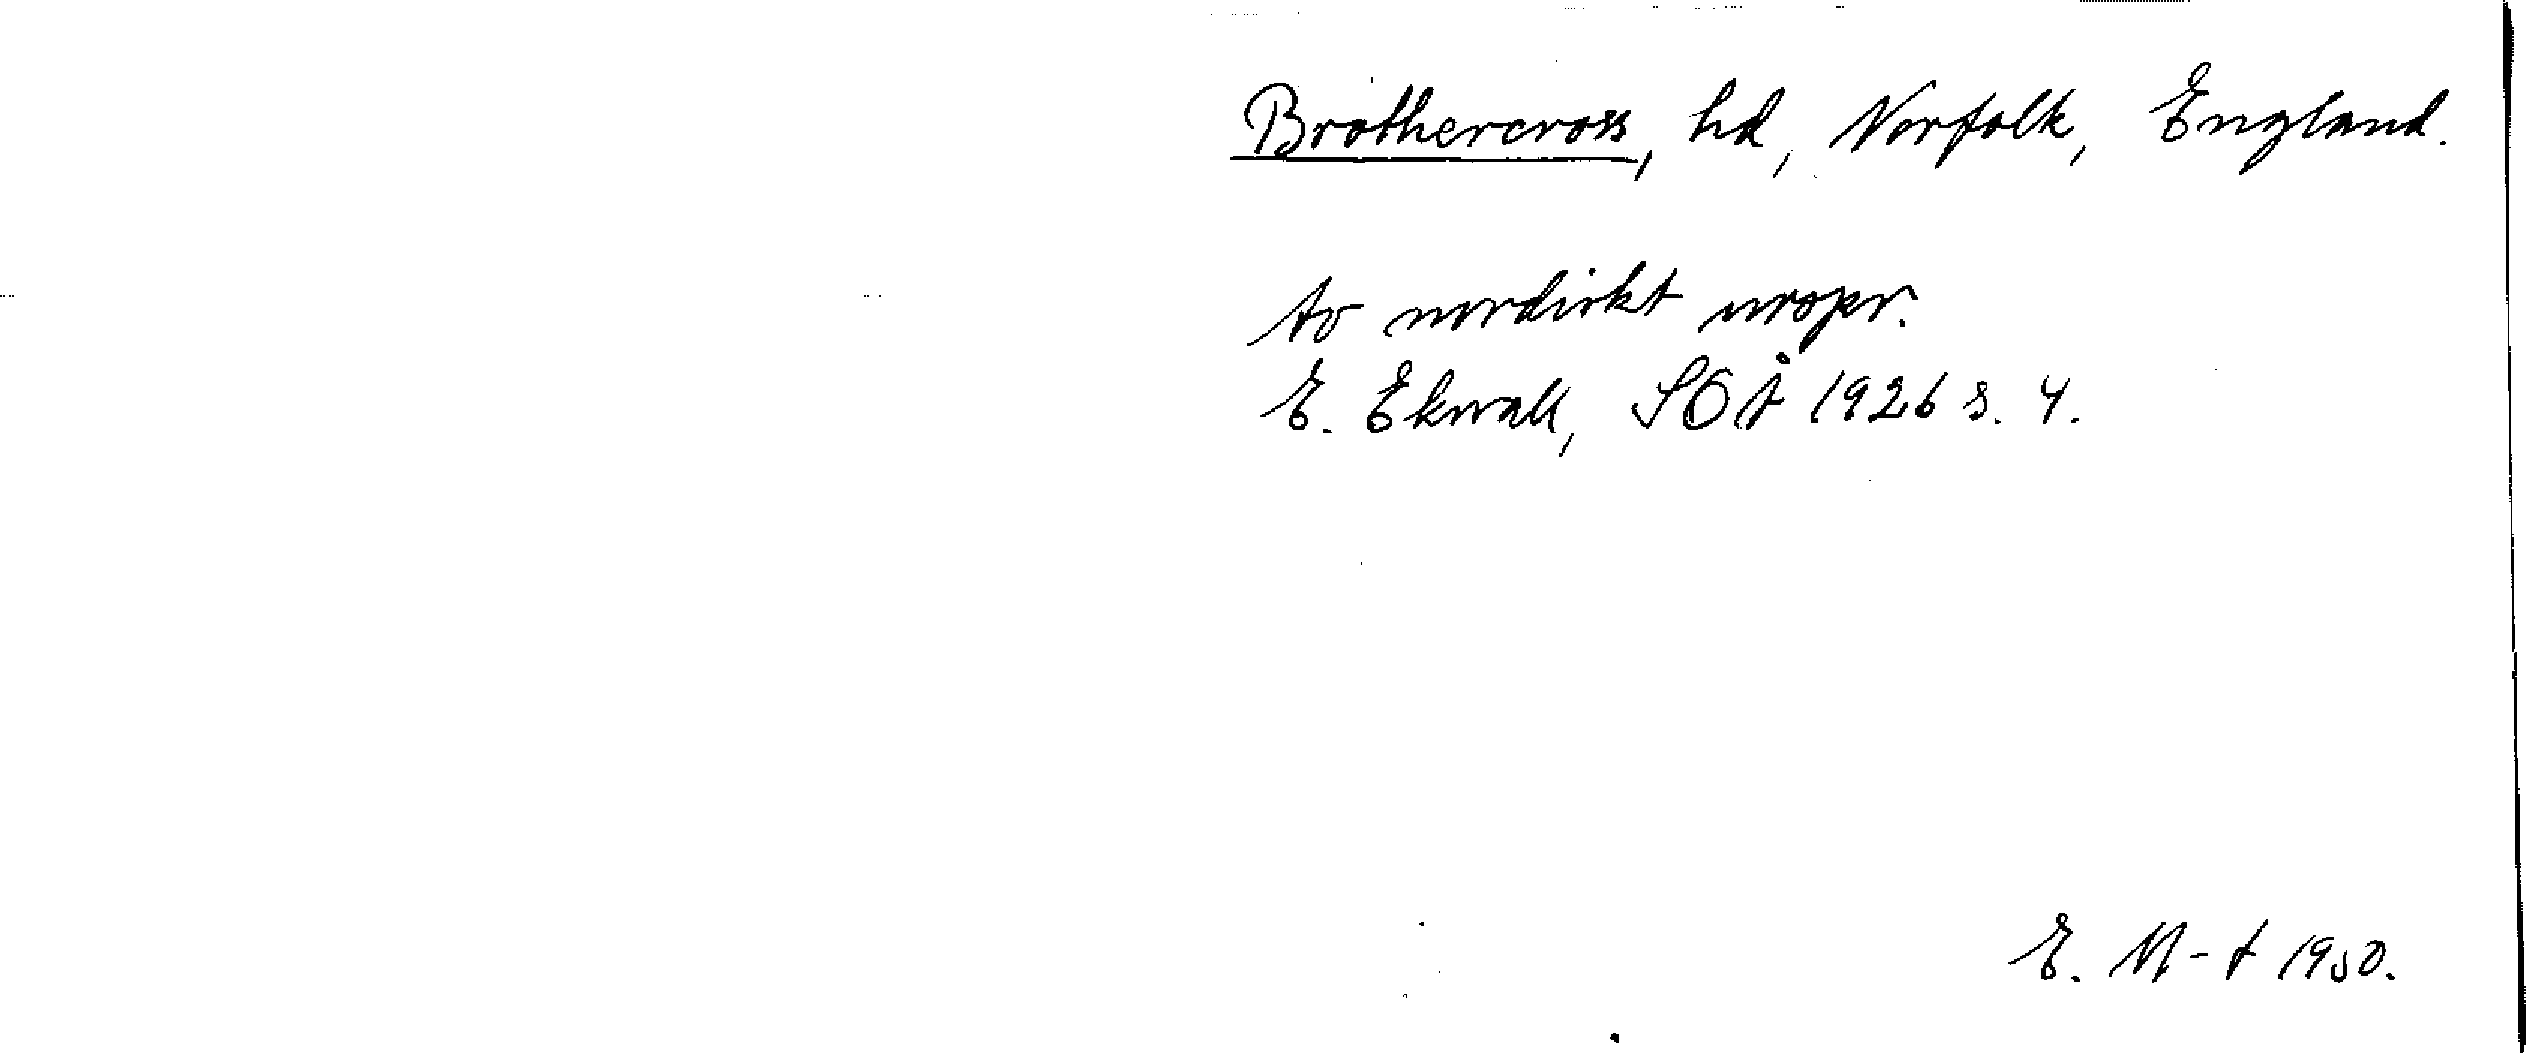 Brothercross, hd, Norfolk, England.
Av nordiskt urspr.
E. Ekwall, SOÅ 1926 s. 4.
E. M-t 1950.